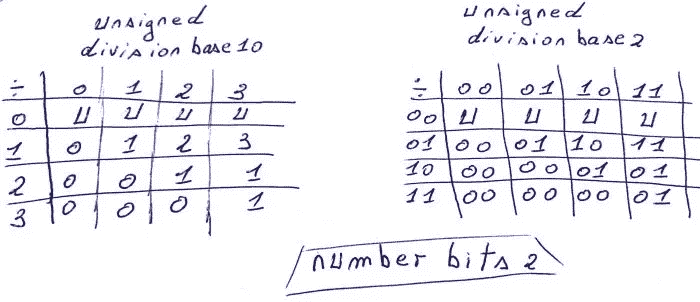 unsigned
division base 10
÷ 0 1 2 3
0 u u u u
1 0 1 2 3
2 0 0 1 1
3 0 0 0 1
unsigned
division base 2
÷ 00 01 10 11
00 u u u u
01 00 01 10 11
10 00 00 01 01
11 00 00 00 01
number bits 2